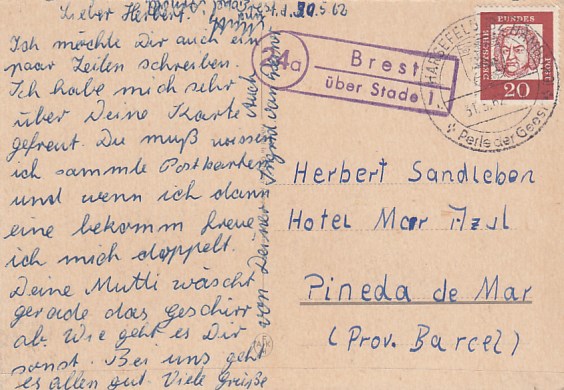 Brest, d. 30.5.62
Lieber Herbert.
Ich möchte Dir auch ein
paar Zeilen schreiben.
Ich habe mich sehr
über Deine Karte
gefreut. Du mußt wissen
ich sammle Postkarten
und wenn ich dann
eine bekomm freue
ich mich doppelt.
Deine Mutti wäscht
gerade das Geschirr
ab. Wie geht es Dir
sonst. Bei uns geht
es allen gut. Viele Grüße
von Deiner Ingrid
Auch
Brest
über Stade
31.5.62
Perle der Geest
DEUTSCHE BUNDESPOST
20
Herbert Sandleben
Hotel Mar Azul
Pineda de Mar
(Prov. Barcel)